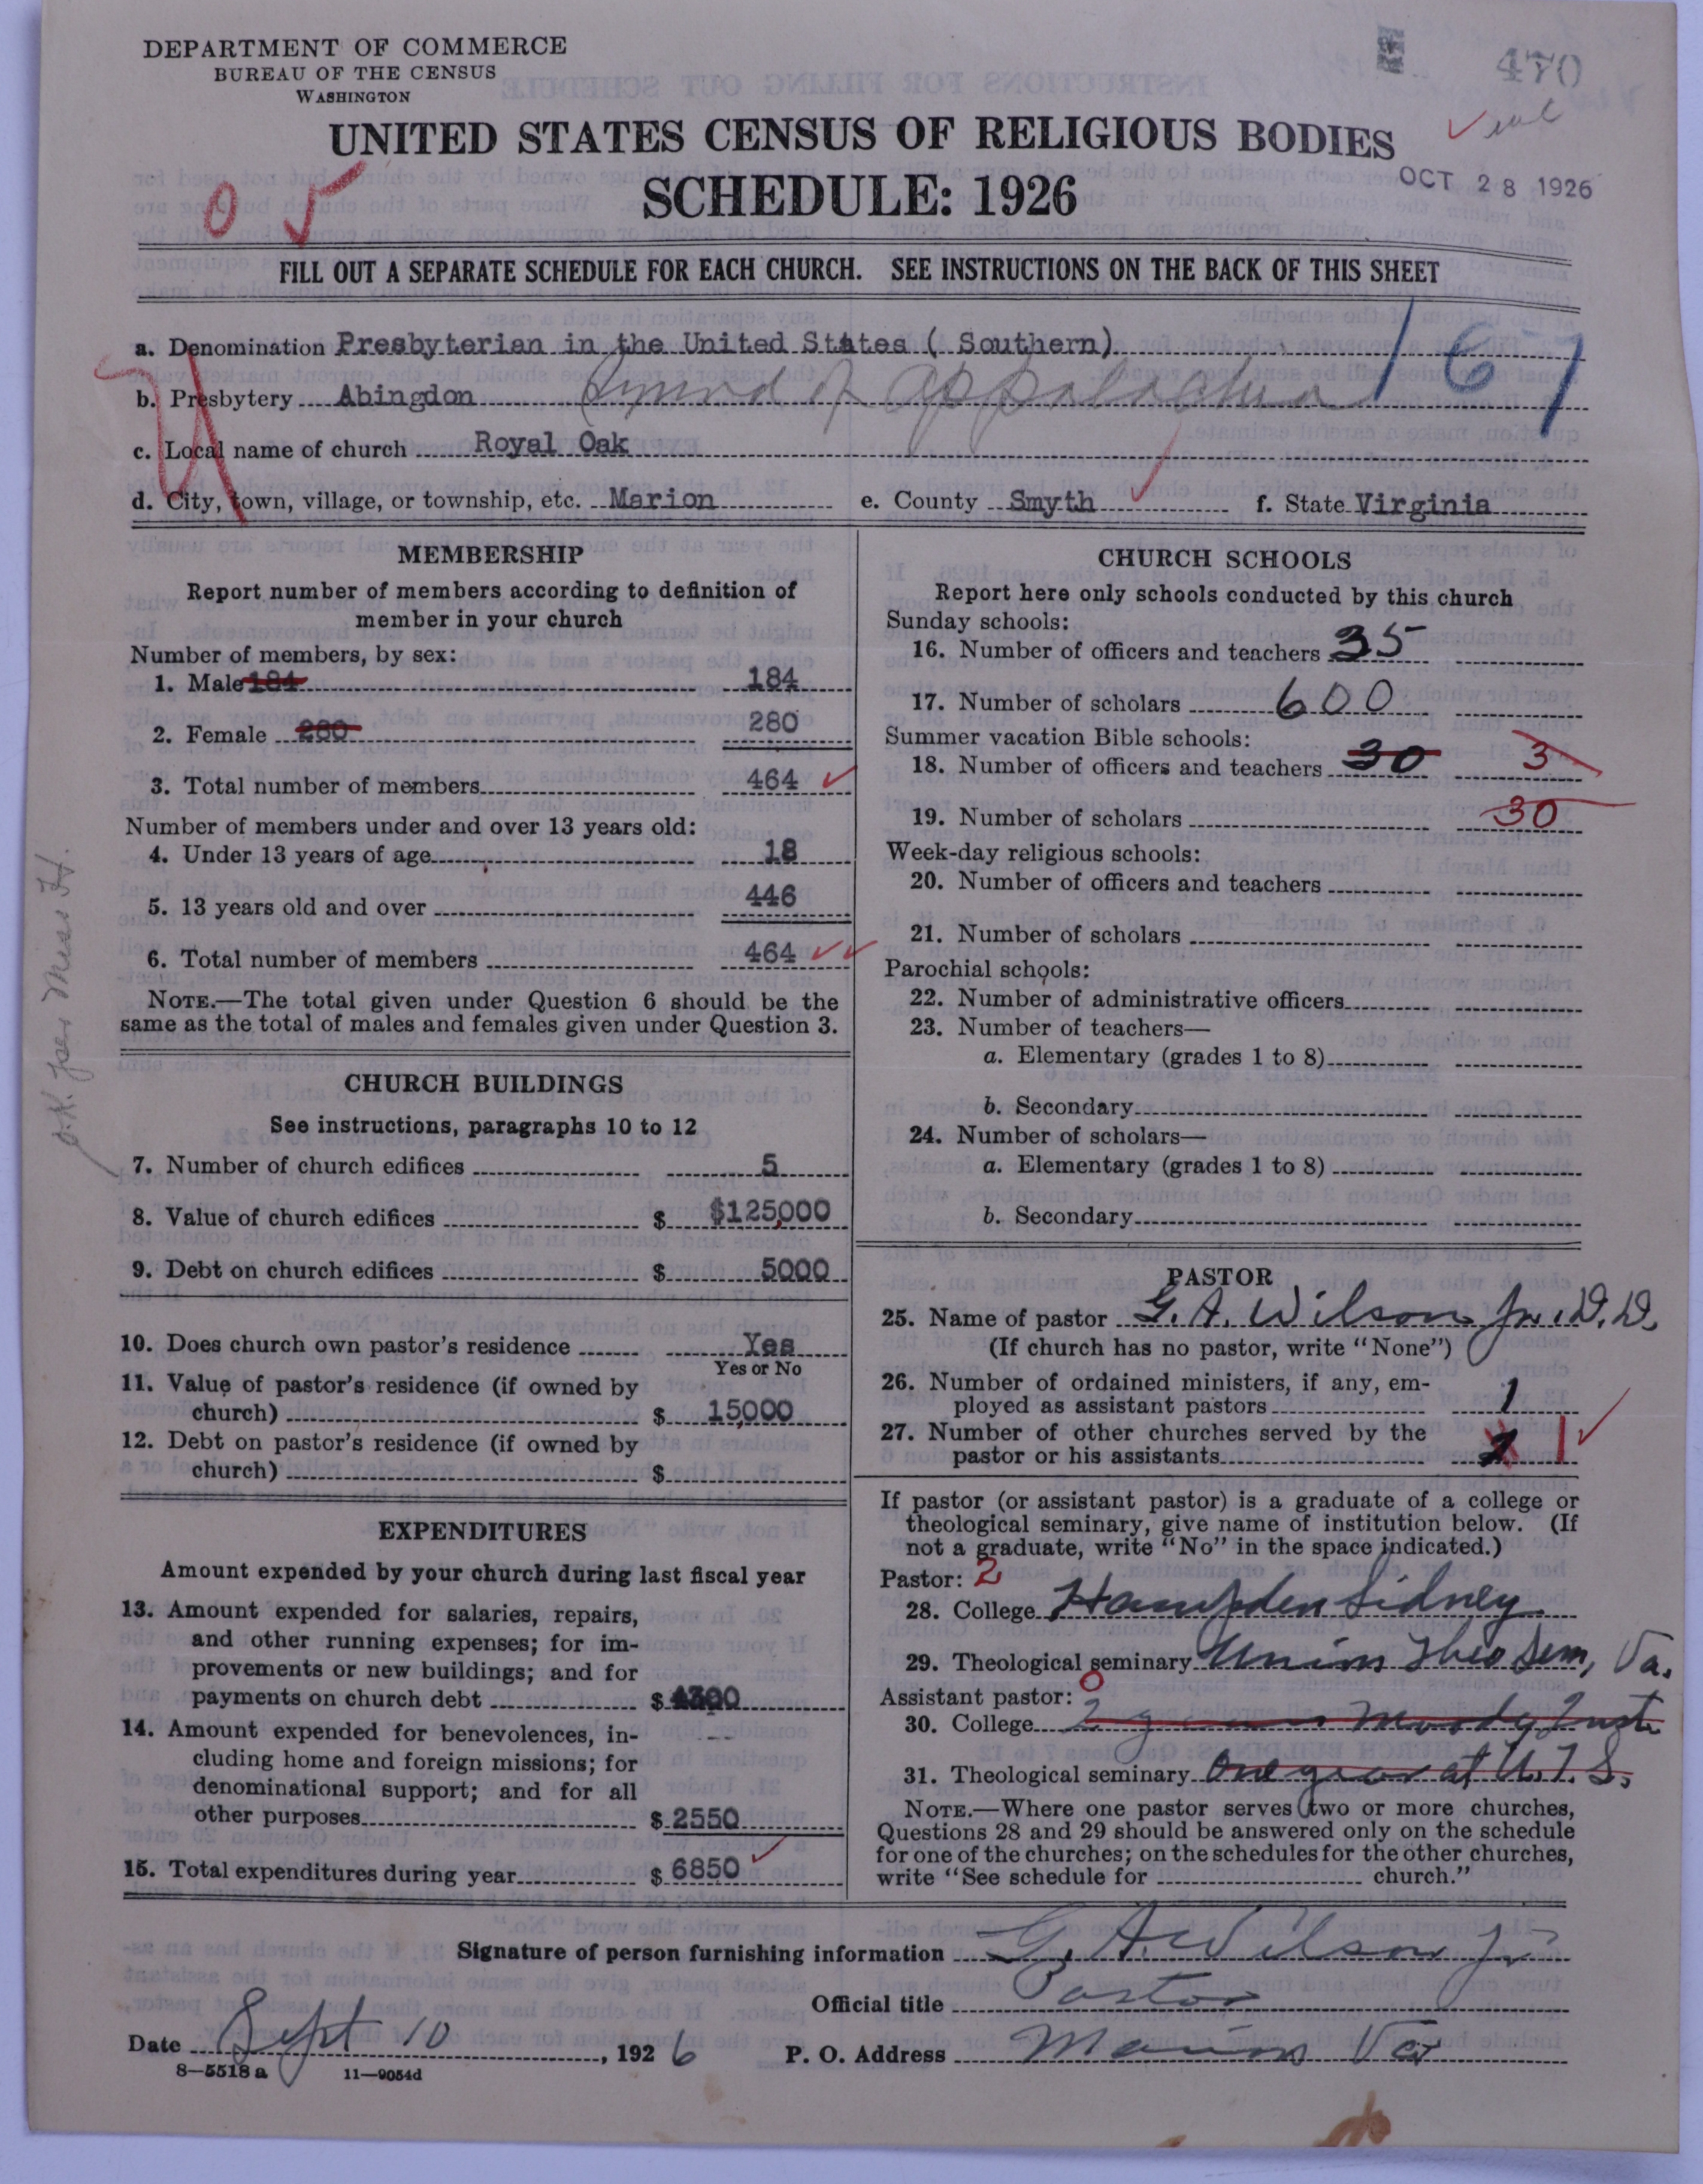 DEPARTMENT OF COMMERCE
BUREAU OF THE CENSUS
WASHINGTON
470
UNITED STATES CENSUS OF RELIGIOUS BODIES
SCHEDULE: 1926
OCT 28 1926
0 5
FILL OUT A SEPARATE SCHEDULE FOR EACH CHURCH. SEE INSTRUCTIONS ON THE BACK OF THIS SHEET
a. Denomination Presbyterian in the United States ( Southern)
167
b. Presbytery Abingdon Synod of Appalachia
c. Local name of church Royal Oak
d. City, town, village, or township, etc. Marion e. County Smyth f. State Virginia
MEMBERSHIP
Report number of members according to definition of
member in your church
Number of members, by sex:
1. Male 184 184
2. Female 280 280
3. Total number of members 464
Number of members under and over 13 years old:
4. Under 13 years of age 18
5. 13 years old and over 446
6. Total number of members 464
NOTE.—The total given under Question 6 should be the
same as the total of males and females given under Question 3.
CHURCH BUILDINGS
See instructions, paragraphs 10 to 12
7. Number of church edifices 5
8. Value of church edifices $ $125,000
9. Debt on church edifices $ 5000
10. Does church own pastor's residence Yes
Yes or No
11. Value of pastor's residence (if owned by
church) $ 15,000
12. Debt on pastor's residence (if owned by
church) $
EXPENDITURES
Amount expended by your church during last fiscal year
13. Amount expended for salaries, repairs,
and other running expenses; for im-
provements or new buildings; and for
payments on church debt $ 4300
14. Amount expended for benevolences, in-
cluding home and foreign missions; for
denominational support; and for all
other purposes $ 2550
15. Total expenditures during year $ 6850
CHURCH SCHOOLS
Report here only schools conducted by this church
Sunday schools:
16. Number of officers and teachers 35
17. Number of scholars 600
Summer vacation Bible schools:
18. Number of officers and teachers 30 3
19. Number of scholars 30
Week-day religious schools:
20. Number of officers and teachers
21. Number of scholars
Parochial schools:
22. Number of administrative officers
23. Number of teachers—
a. Elementary (grades 1 to 8)
b. Secondary
24. Number of scholars—
a. Elementary (grades 1 to 8)
b. Secondary
PASTOR
25. Name of pastor G. A. Wilson Jr. D.D.
(If church has no pastor, write "None")
26. Number of ordained ministers, if any, em-
ployed as assistant pastors 1
27. Number of other churches served by the
pastor or his assistants 1
If pastor (or assistant pastor) is a graduate of a college or
theological seminary, give name of institution below. (If
not a graduate, write "No" in the space indicated.)
Pastor: 2
28. College Hampden Sidney
29. Theological seminary Union Theo Sem, Va.
Assistant pastor: 0
30. College 2 Moody Inst.
31. Theological seminary One year at U.T.S.
NOTE.—Where one pastor serves two or more churches,
Questions 28 and 29 should be answered only on the schedule
for one of the churches; on the schedules for the other churches,
write "See schedule for church."
Signature of person furnishing information G. A. Wilson Jr
Official title Pastor
Date Sept 10, 1926 P. O. Address Marion Va
8—5518a 11—9054d